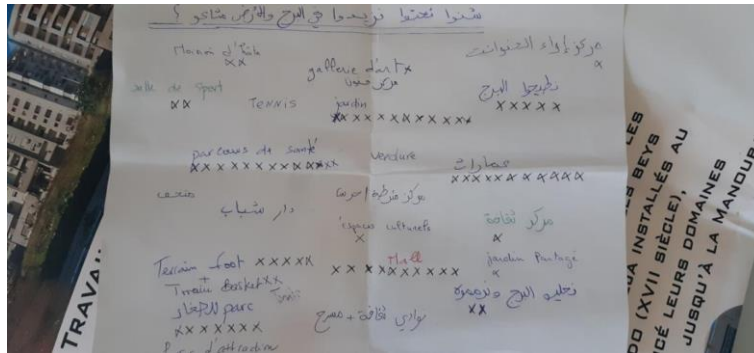 شنوا تحبوا تزيدوا في البرج والأرض متاعو ؟
Maison d'hôte
xx
gallerie d'art x
مركز فنون
مركز إيواء
x
salle de sport
xx
Tennis
jardin
xxxxxxxxxxx
نطيحوا البرج
xxxxx
parcours de santé
xxxxxxxxxxxx
verdure
عمارات
xxxxxxxxxx
متحف
دار شباب
مركز شرطة / حرس
espace culturels
x
مركز ثقافة
x
Terrain foot xxxxx
+
Terrain Basket xx
Mall
xxxxxxxxxx
jardin Partagé
x
parc للصغار
xxxxxx
نوادي ثقافة + مسرح
نخليو البرج و نرمموه
xx
Parc d'attraction
TRAVA
LES
S BEYS
UA INSTALLÉS AU
DO (XVII SIÈCLE),
CÉ LEURS DOMAINES
JUSQU'À LA MANOUB